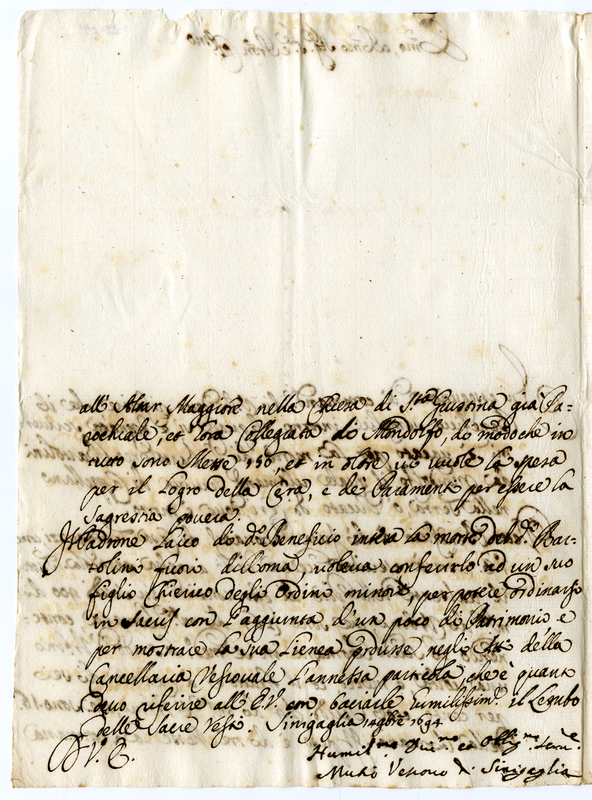 all' Altar Maggiore nella Chiesa di S.ta Giustina già Pa-
rochiale, et hora Collegiata di Mondolfo, di modo che in
tutto sono Messe 150, et in oltre vi vuole la spesa
per il logro della Cera, e de Paramenti per essere la
Sagrestia povera.
Il Padrone Laico di d.o Beneficio intesa la morte del d.o Bar-
tolini fuori di Roma, voleva conferirlo ad un suo
figlio Chierico degli Ordini minori, per potere ordinarsi
in Sacris con l'aggiunta d'un poco di Patrimonio e
per mostrare la sua Lienea produsse negli Atti della
Cancellaria Vescovale l'annessa particola, che è quanto
devo riferire all' E.V. con baciarle humilissim.e il Lembo
delle Sacre Vesti. Sinigaglia 14 9bre 1694
D. V. E.
Humil.mo Div.mo et Obblig.mo Serv.e
Vescovo di Sinigaglia